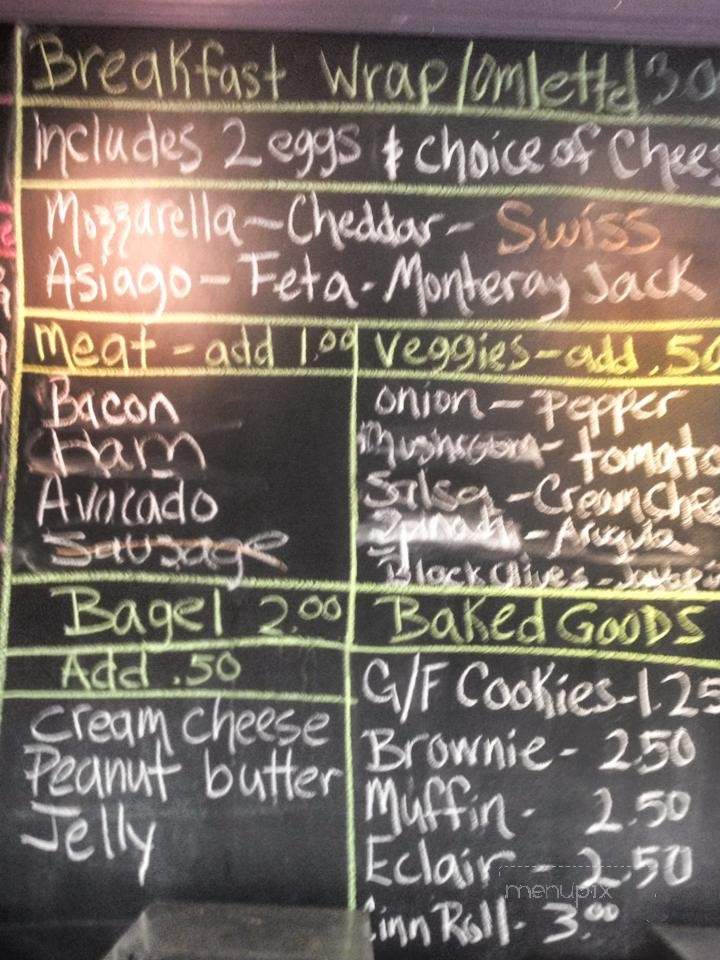 Breakfast Wrap/omlette 3.0
includes 2 eggs & choice of Chees
Mozzarella - Cheddar - Swiss
Asiago - Feta - Monteray Jack
meat - add 1.00
Bacon
Ham
Avocado
Sausage
veggies - add .50
onion - Pepper
Mushroom - tomato
Salsa - Cream Chee
Spinach - Arugula
Black Olives -
Bagel 2.00
Add .50
cream cheese
Peanut butter
Jelly
BaKed GOODS
G/F Cookies - 1.25
Brownie - 2.50
Muffin - 2.50
Eclair - 2.50
Cinn Roll - 3.00
menupix